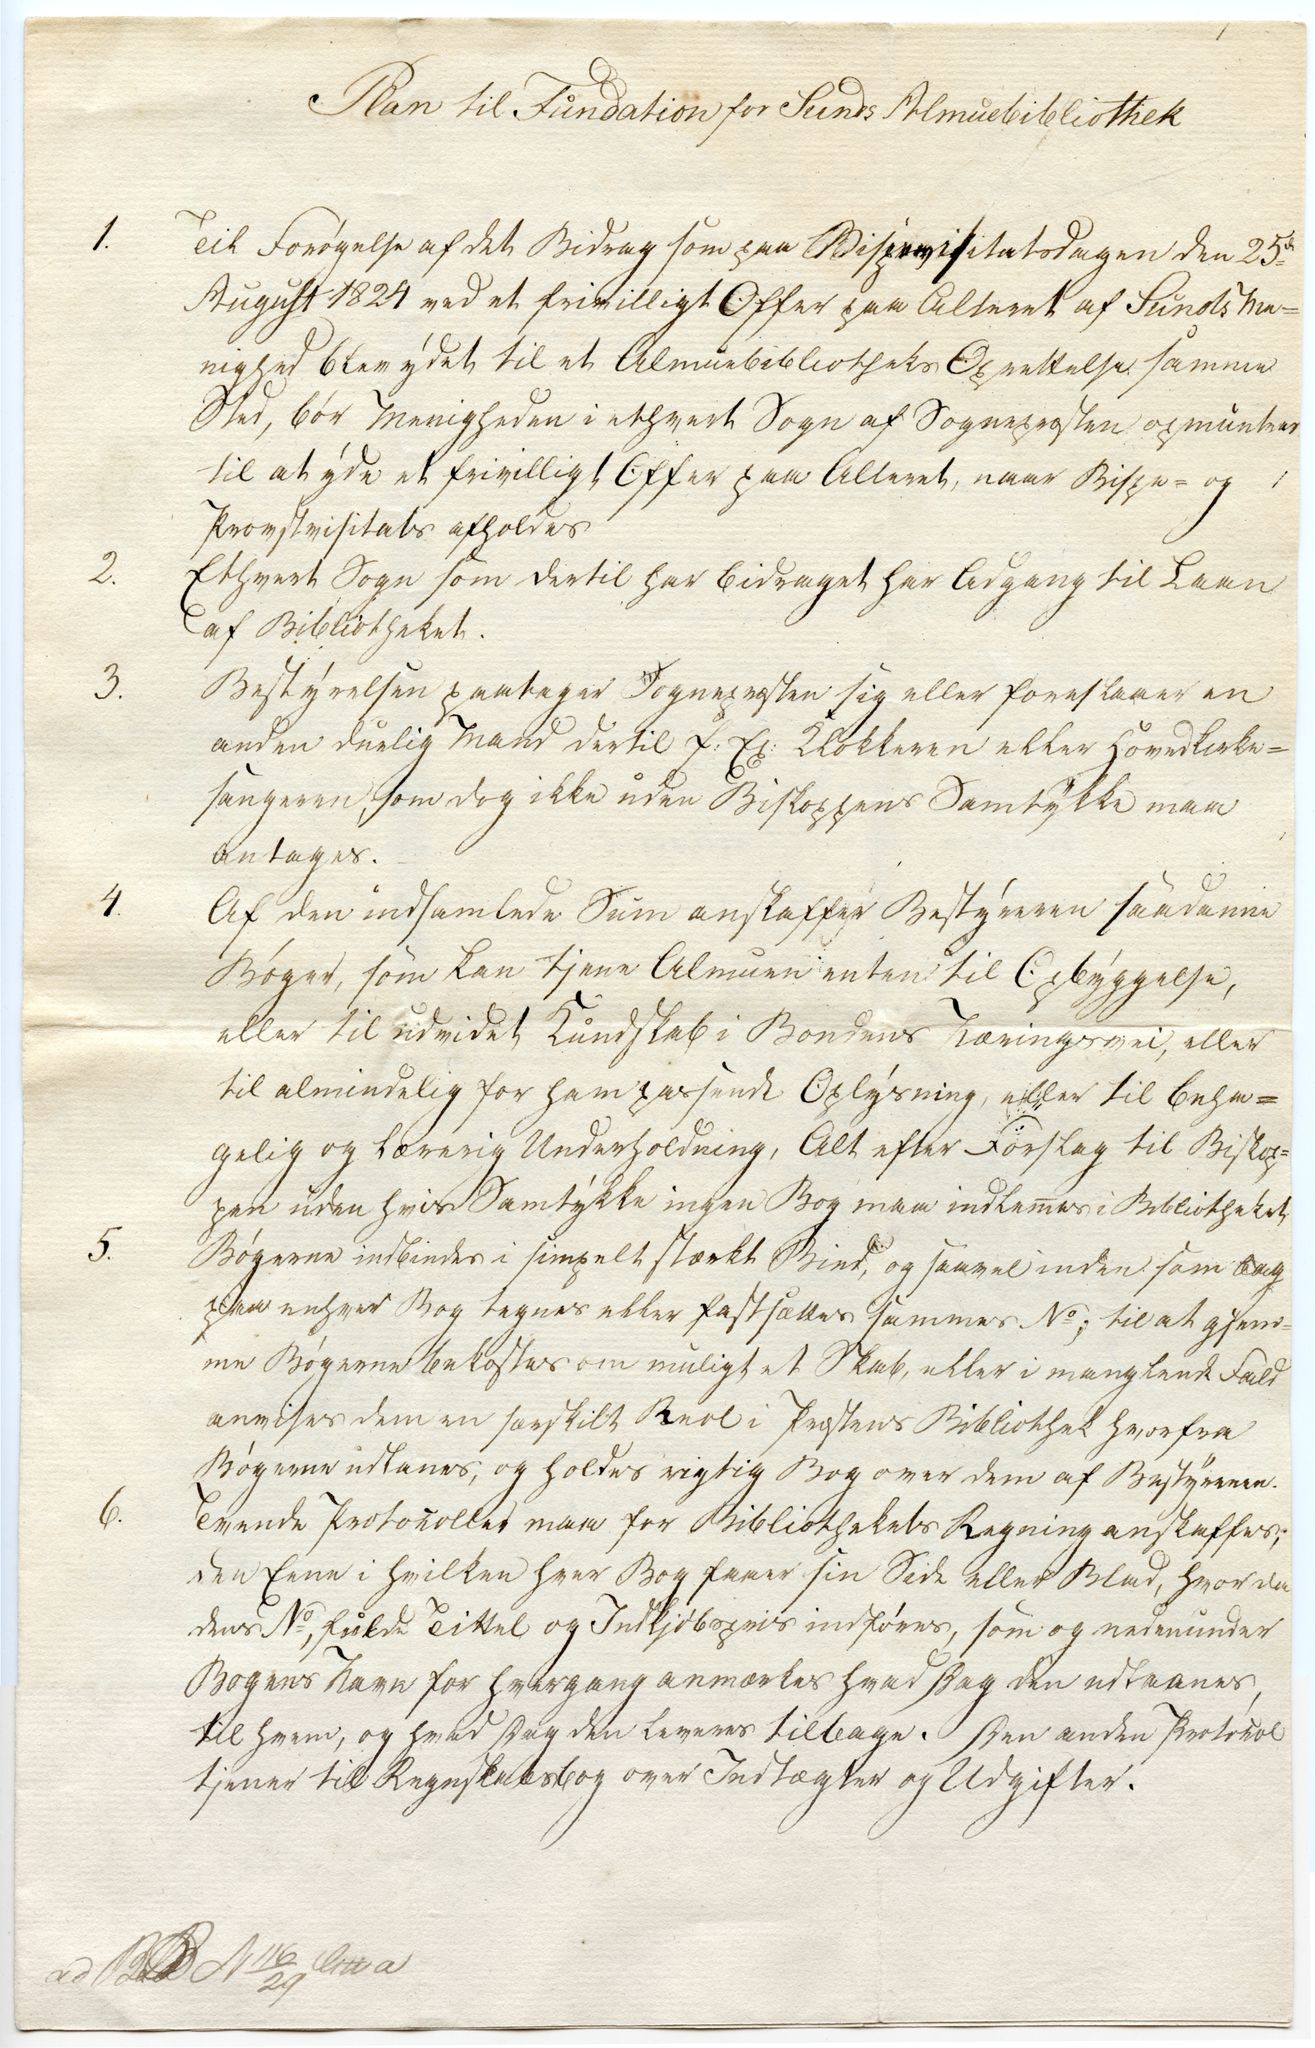 Plan til Fundation for Sunds Almuebibliothek
1. Til Forøgelse af det Bidrag som paa Bispevisitatsdagen den 25de
August 1824 ved et frivilligt Offer paa Alteret af Sunds Me=
nighed blev ydet til et Almuebibliotheks Oprettelse samme
Sted, bør Menigheden i ethvert Sogn af Sognepresten opmuntres
til at yde et frivilligt Offer paa Alteret, naar Bispe= og
Provstvisitats afholdes
2. Ethvert Sogn som dertil har bidraget har Adgang til Laan
af Bibliotheket.
3. Bestyrelsen paatager Sognepresten sig eller foreslaaer en
anden duelig Mand dertil f: Ex: Klokkeren eller Hovedkirke=
sangeren, som dog ikke uden Biskoppens Samtykke maa
antages.
4. Af den indsamlede Sum anskaffer Bestyreren saadanne
Bøger, som kan tjene Almuen enten til Opbyggelse,
eller til udvidet Kundskab i Bondens Næringsvei, eller
til almindelig for ham passende Oplysning, eller til beha=
gelig og lærerig Underholdning, Alt efter Forslag til Biskop=
pen uden hvis Samtykke ingen Bog maa indlemmes i Bibliotheket
5. Bøgerne indbindes i simpelt stærkt Bind, og saavel inden som bag
paa enhver Bog tegnes eller fastsættes sammes No; til at gjem=
me Bøgerne bekostes om muligt et Skab, eller i manglende Fald
anvises dem en særskilt Reol i Prestens Bibliothek hvorfra
Bøgerne udlanes, og holdes rigtig Bog over dem af Bestyreren.
6. Tvende Protocoller maa for Bibliothekets Regning anskaffes;
den Eene i hvilken hver Bog faaer sin Side eller Blad, hvor da
dens No, fulde Tittel og Indkjøbspris indføres, som og nedenunder
Bogens Navn for hvergang anmærkes hvad Dag den udlaanes,
til hvem, og hvad Dag den leveres tilbage. Den anden Protocol
tjener til Regnskabsbog over Indtægter og Udgifter.
ad N 116/29 Litt a